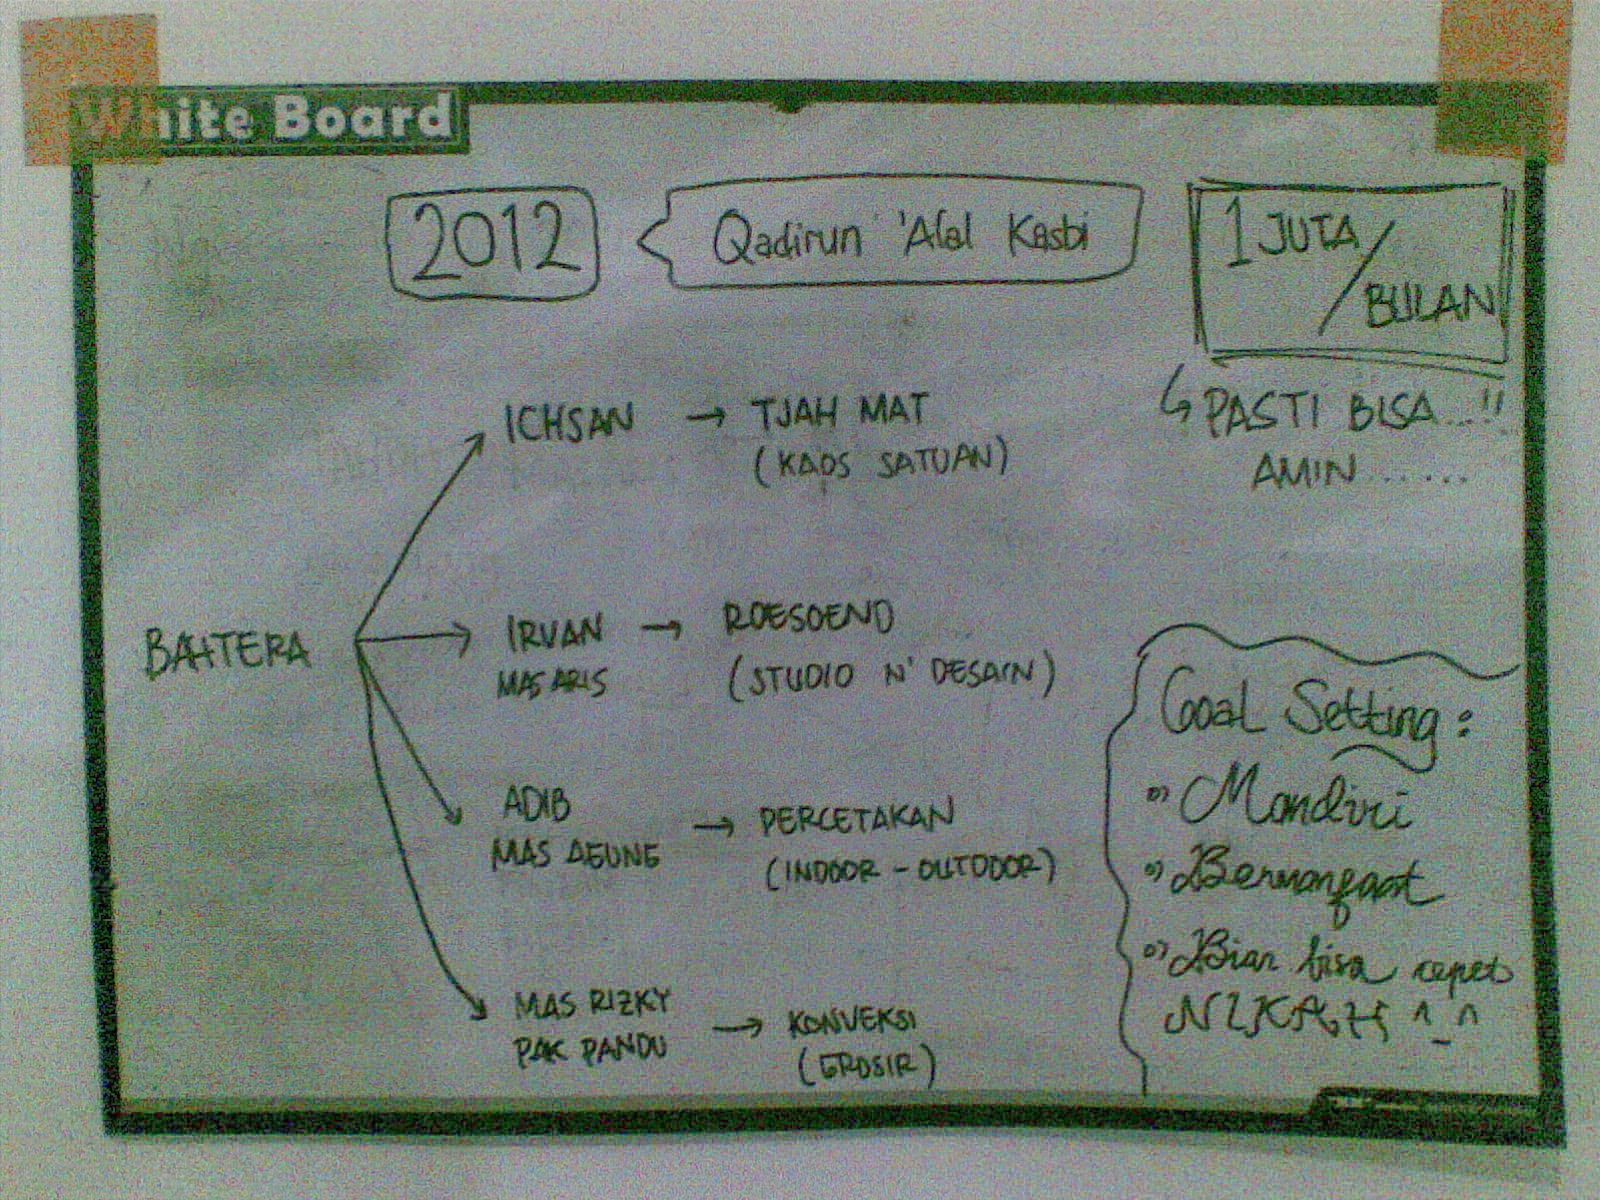 White Board
2012
Qadirun 'Alal Kasbi
1 JUTA/
BULAN
PASTI BISA...!!
AMIN......
BAHTERA
ICHSAN → TJAH MAT
(KAOS SATUAN)
IRVAN → ROESOEND
MAS ARIS (STUDIO N' DESAIN)
ADIB → PERCETAKAN
MAS AGUNG (INDOOR - OUTDOOR)
MAS RIZKY → KONVEKSI
PAK PANDU (GROSIR)
Goal Setting :
Mandiri
Bermanfaat
Biar bisa cepet
NIKAH ^_^